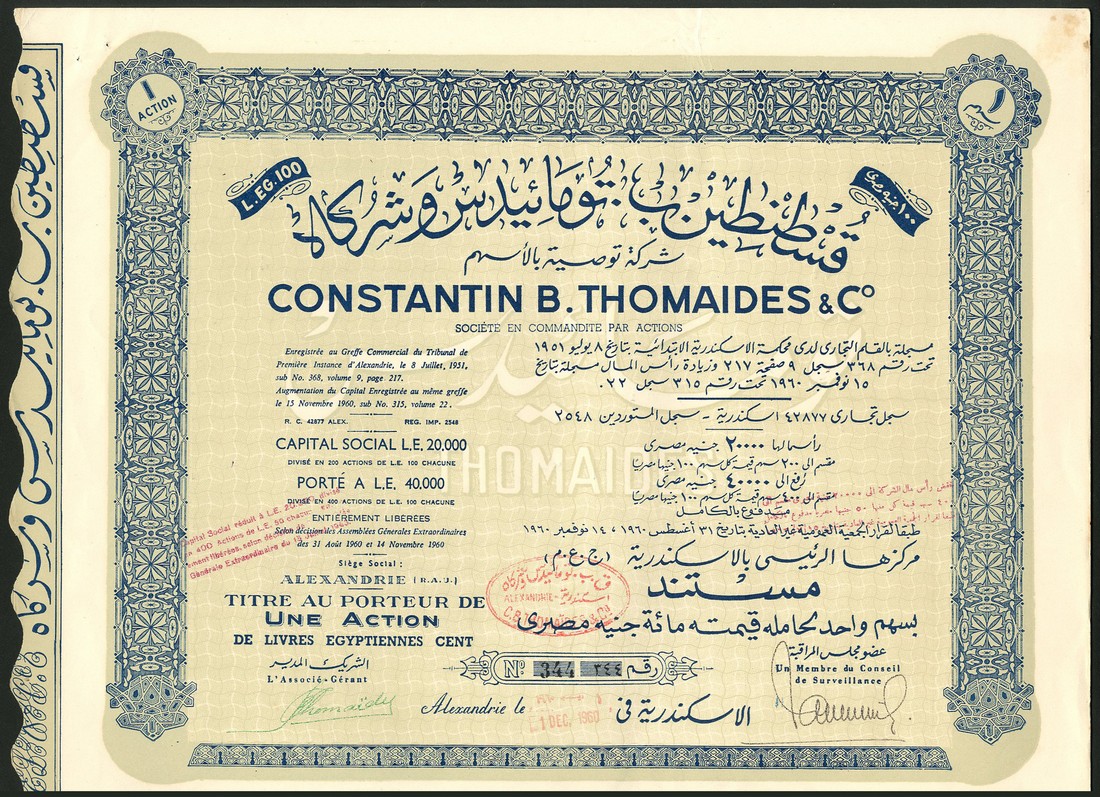 1
ACTION
١
سهم
L.EG. 100
١٠٠ جنيه مصرى
قسطنطين ب. تومائيدس وشركاه
شركة توصية بالأسهم
CONSTANTIN B. THOMAIDES & Cº
SOCIÉTÉ EN COMMANDITE PAR ACTIONS
Enregistrée au Greffe Commercial du Tribunal de
Première Instance d'Alexandrie, le 8 Juillet, 1951,
sub No. 368, volume 9, page 217.
Augmentation du Capital Enregistrée au même greffe
le 15 Novembre 1960, sub No. 315, volume 22.
R. C. 42877 ALEX. REG. IMP. 2548
CAPITAL SOCIAL L.E. 20,000
DIVISÉ EN 200 ACTIONS DE L.E. 100 CHACUNE
PORTÉ A L.E. 40,000
DIVISÉ EN 400 ACTIONS DE L.E. 100 CHACUNE
ENTIÈREMENT LIBÉRÉES
Selon décision des Assemblées Générales Extraordinaires
des 31 Août 1960 et 14 Novembre 1960
Siège Social :
ALEXANDRIE (R.A.U.)
TITRE AU PORTEUR DE
UNE ACTION
DE LIVRES EGYPTIENNES CENT
مسجلة بالقلم التجارى لدى محكمة الاسكندرية الابتدائية بتاريخ ٨ يوليو ١٩٥١
تحت رقم ٣٦٨ سجل ٩ صفحة ٢١٧ وزيادة رأس المال مسجلة بتاريخ
١٥ نوفمبر ١٩٦٠ تحت رقم ٣١٥ سجل ٢٢.
سجل تجارى ٤٢٨٧٧ اسكندرية - سجل المستوردين ٢٥٤٨
رأسمالها ٢٠٠٠٠ جنيه مصرى
مقسم إلى ٢٠٠ سهم قيمة كل سهم ١٠٠ جنيها مصريا
رفع إلى ٤٠٠٠٠ جنيه مصرى
مقسم إلى ٤٠٠ سهم قيمة كل سهم ١٠٠ جنيها مصريا
مدفوع بالكامل
طبقا لقرار الجمعية العمومية غير العادية بتاريخ ٣١ أغسطس ١٩٦٠، ١٤ نوفمبر ١٩٦٠
مركزها الرئيسى بالاسكندرية (ج.ع.م)
مستند
بسهم واحد لحامله قيمته مائة جنيه مصرى
Capital Social réduit à L.E. 20.000 divisé
en 400 Actions de L.E. 50 chacune
ment libérées, selon
Générale Extraordinaire du 13
ق. ب. تومائيدس وشركاه
اسكندرية - ALEXANDRIE
C.B. THOMAIDES & Co
الشريك المدير
L'Associé-Gérant
Nº 344 ٣٤٤ رقم
عضو مجلس المراقبة
Un Membre du Conseil
de Surveillance
Alexandrie le
1 DEC. 1960
الاسكندرية فى
THOMAIDES
قسطنطين ب. تومائيدس وشركاه